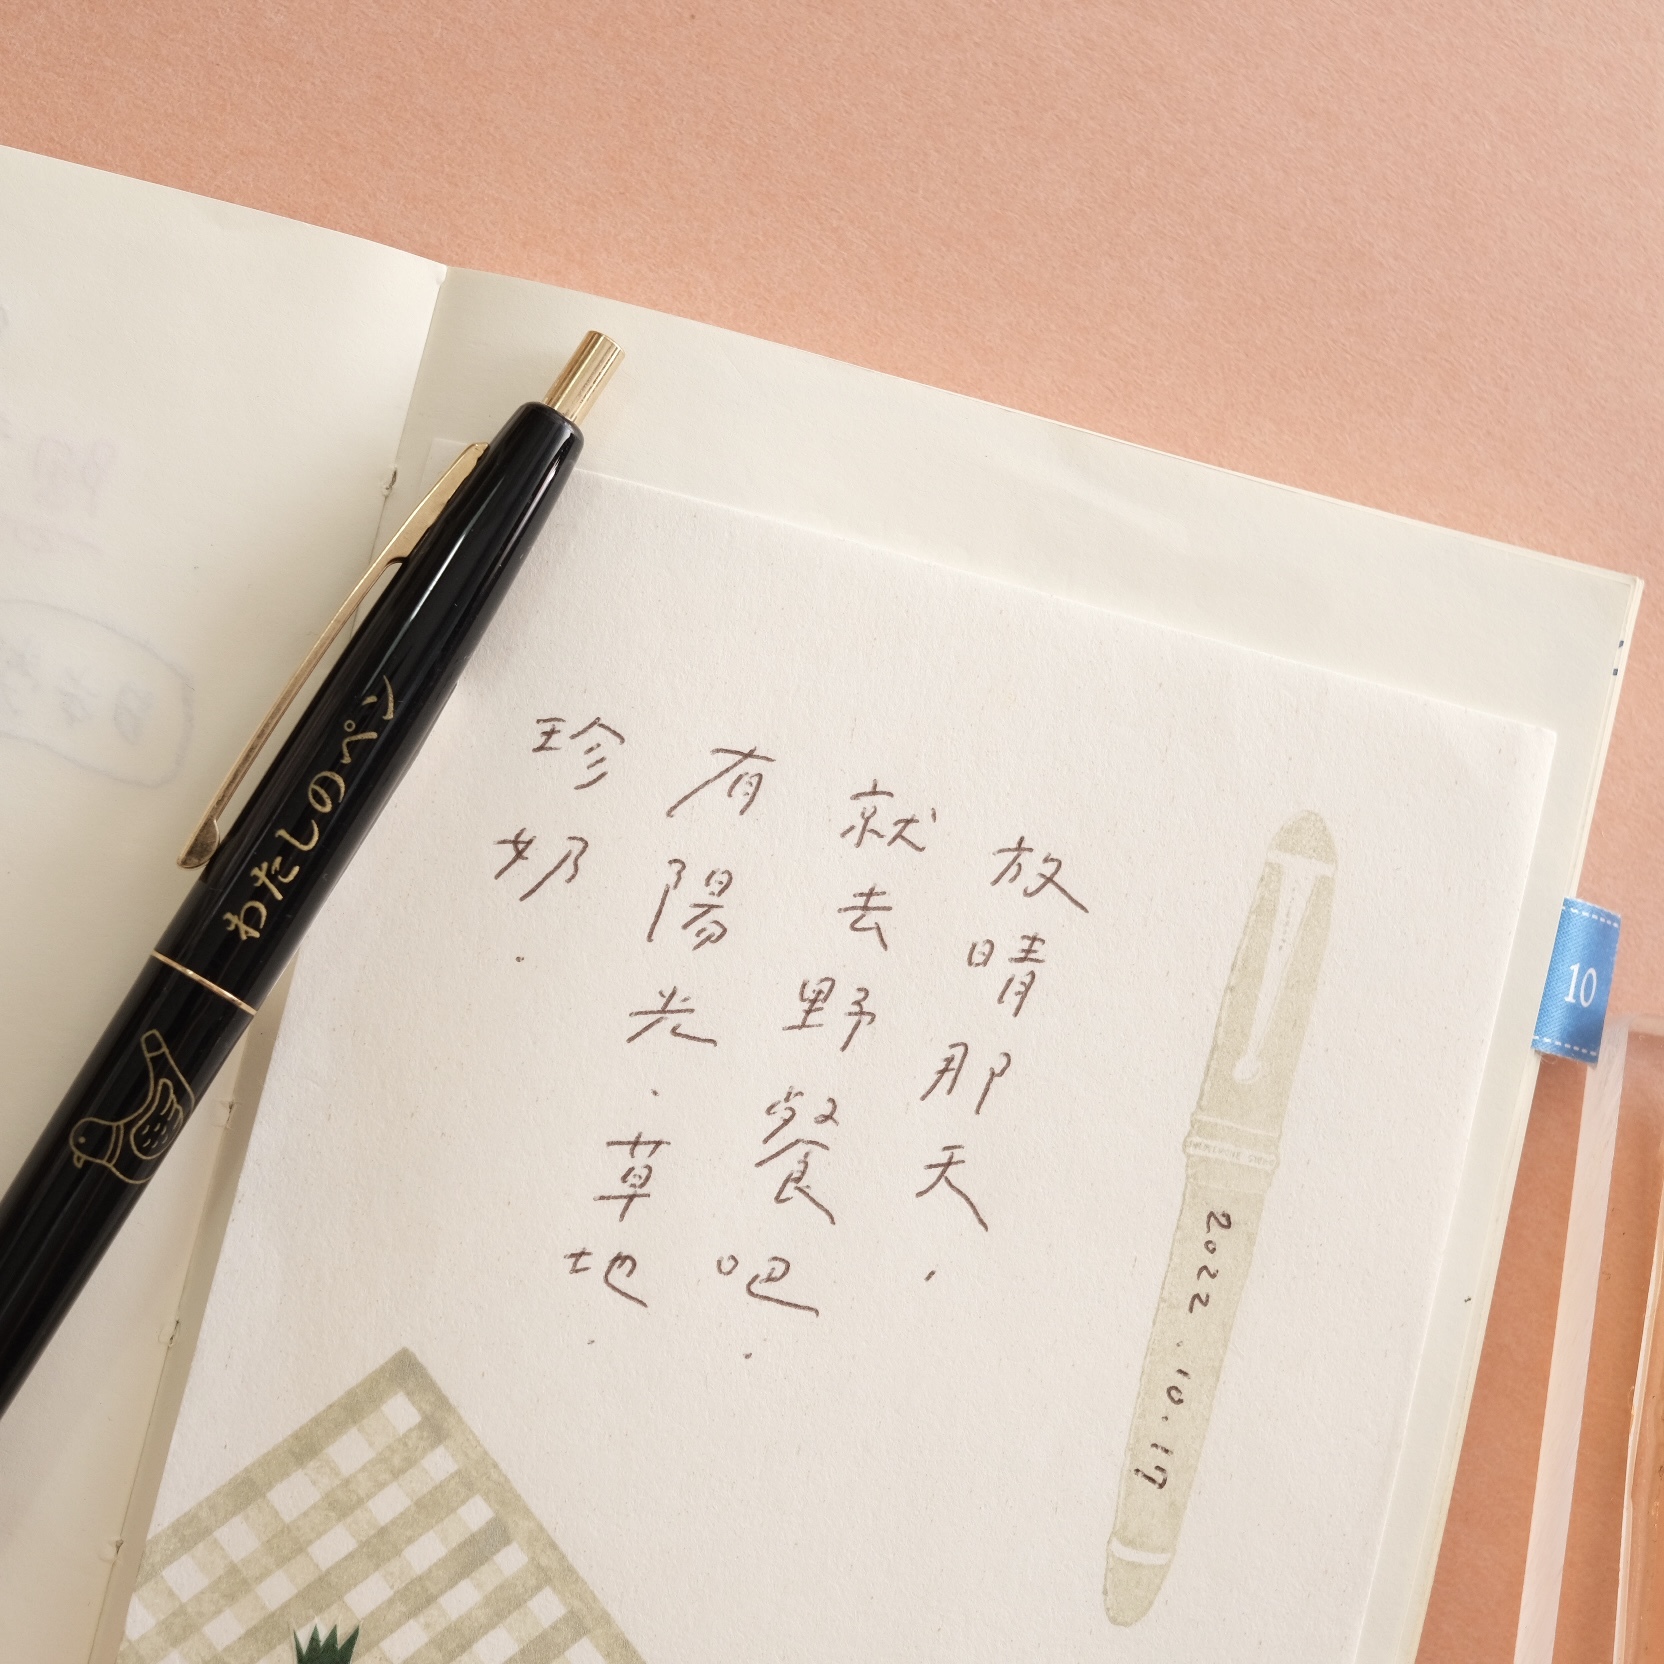 放晴那天．
就去野餐吧．
有陽光．草地．
珍奶．
2022.10.17
わたしのペン
10